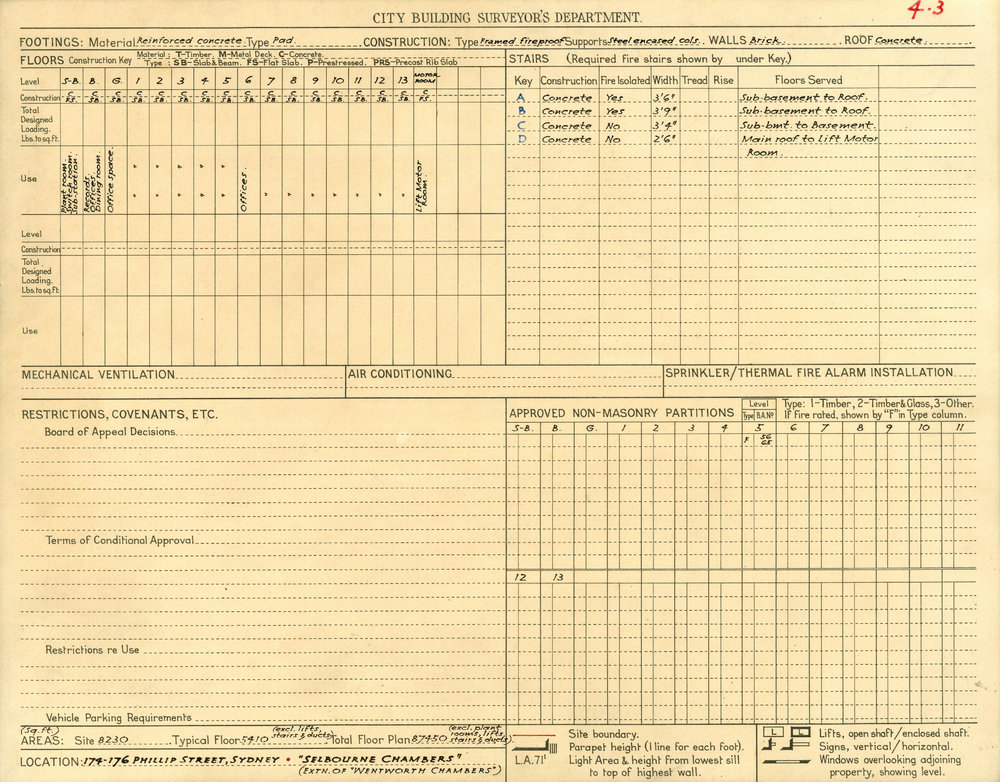 4.3
CITY BUILDING SURVEYOR'S DEPARTMENT.
FOOTINGS: Material Reinforced concrete Type Pad. CONSTRUCTION: Type Framed fireproof Supports Steel encased cols. WALLS Brick. ROOF Concrete.
FLOORS Construction Key Material: T-Timber. M-Metal Deck. C-Concrete.
Type: SB-Slab & Beam. FS-Flat Slab. P-Prestressed. PRS-Precast Rib Slab
Level S-B. B. G. 1 2 3 4 5 6 7 8 9 10 11 12 13 MOTOR ROOM
Construction C FS. C SB. C SB. C SB. C SB. C SB. C SB. C SB. C SB. C SB. C SB. C SB. C SB. C SB. C SB. C SB. C FS.
Total Designed Loading. Lbs. to sq. ft.
Use Plant room. Switch room. Sub-station. Records. Offices. Dining room. Office space. " " " " " " " " " " Offices. " " " " " " " Lift Motor Room.
Level
Construction
Total Designed Loading. Lbs. to sq. ft.
Use
STAIRS (Required fire stairs shown by under Key.)
Key Construction Fire Isolated Width Tread Rise Floors Served
A Concrete Yes 3'6" Sub-basement to Roof.
B Concrete Yes 3'9" Sub-basement to Roof.
C Concrete No 3'4" Sub-bmt. to Basement.
D Concrete No 2'6" Main roof to Lift Motor
Room.
MECHANICAL VENTILATION AIR CONDITIONING SPRINKLER/THERMAL FIRE ALARM INSTALLATION
RESTRICTIONS, COVENANTS, ETC.
Board of Appeal Decisions
Terms of Conditional Approval
Restrictions re Use
Vehicle Parking Requirements
APPROVED NON-MASONRY PARTITIONS Level Type B.A.No Type: 1-Timber, 2-Timber & Glass, 3-Other.
If fire rated, shown by "F" in Type column.
S-B. B. G. 1 2 3 4 5 6 7 8 9 10 11
F 56 65
12 13
(Sq. ft.) (excl. lifts, stairs & ducts) (excl. plant rooms, lifts, stairs & ducts)
AREAS: Site 8230 Typical Floor 5410 Total Floor Plan 87450
LOCATION: 174-176 PHILLIP STREET, SYDNEY • "SELBOURNE CHAMBERS"
(EXTN. OF "WENTWORTH CHAMBERS")
Site boundary.
Parapet height (1 line for each foot).
L.A. 71' Light Area & height from lowest sill
to top of highest wall.
L Lifts, open shaft/enclosed shaft.
Signs, vertical/horizontal.
Windows overlooking adjoining
property, showing level.